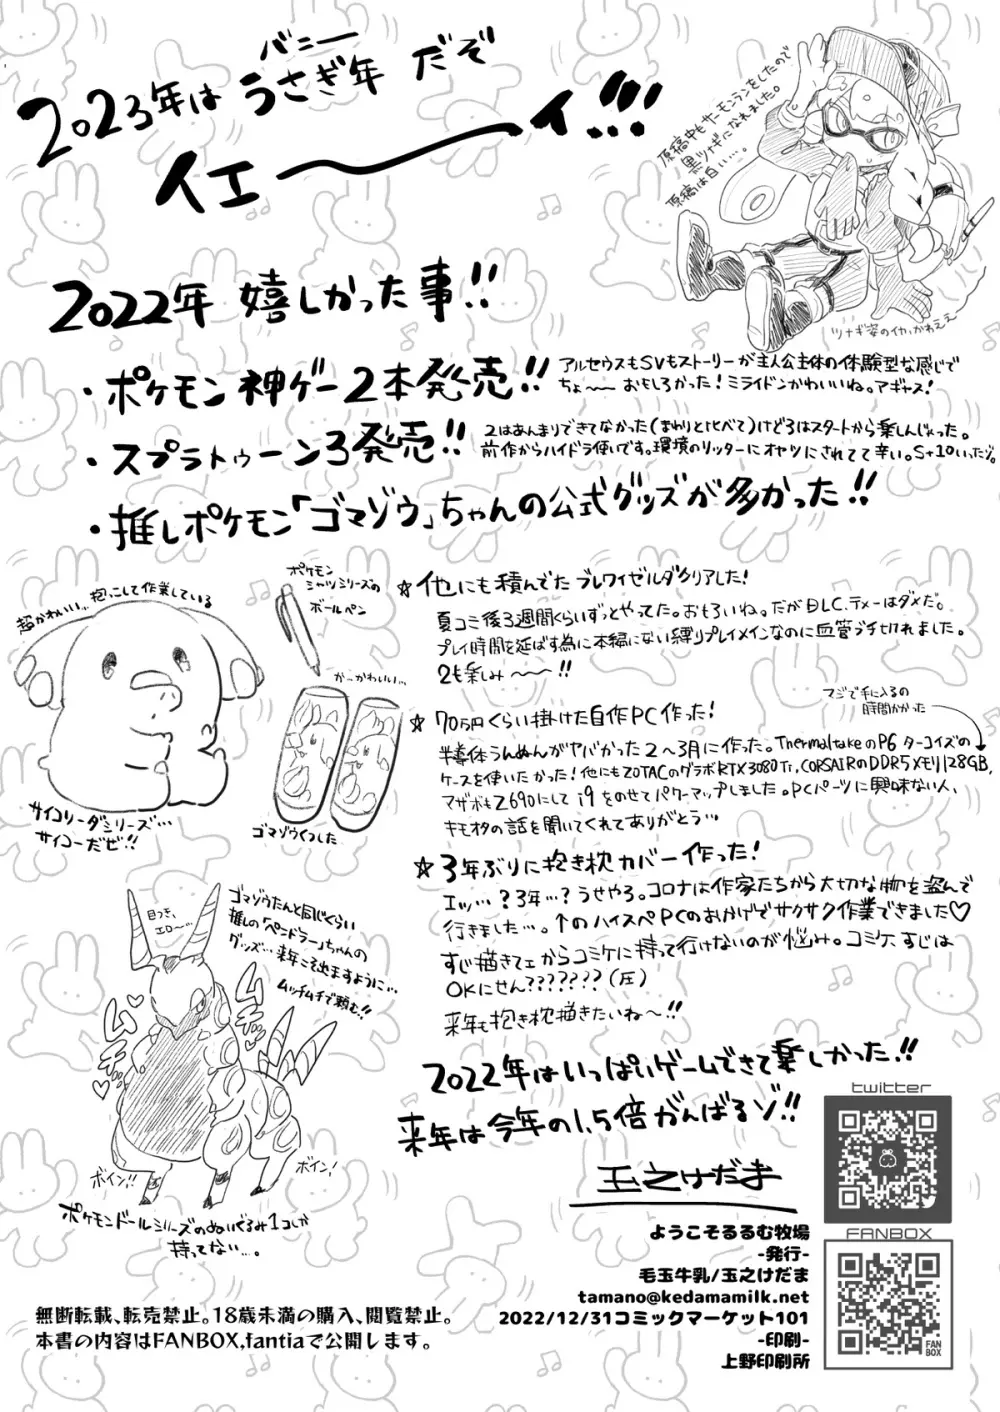 バニー
2023年は うさぎ年 だぞ
イエーーイ!!!
原稿中もサーモンランをしたので
黒ツナギになれました。
原稿は白い…。
ツナギ姿のイカ、かわええ
2022年 嬉しかった事!!
・ポケモン神ゲー2本発売!!
アルセウスもSVもストーリーが主人公主体の体験型な感じで
ちょ〜〜おもしろかった!ミライドンかわいいね。アギャス!
・スプラトゥーン3発売!!
2はあんまりできてなかった(まわりと比べて)けど3はスタートから楽しんじゃった。
前作からハイドラ使いです。環境のリッターにオヤツにされてて辛い。S+10いったゾ。
・推しポケモン「ゴマゾウ」ちゃんの公式グッズが多かった!!
超かわいい…抱っこして作業している
サイコソーダシリーズ…
サイコーだぜ!!
ポケモン
シャツシリーズの
ボールペン
かーかわいい…
ゴマゾウくつした
☆他にも積んでたブレワイゼルダクリアした!
夏コミ後3週間くらいずっとやってた。おもろいね。だがDLC、テメーはダメだ。
プレイ時間を延ばす為に本編にない縛りプレイメインなのに血管ブチ切れました。
2も楽しみ〜〜!!
☆70万円くらい掛けた自作PC作った!
マジで手に入るの
時間かかった
半導体うんぬんがヤバかった2〜3月に作った。ThermaltakeのP6 ターコイズの
ケースを使いたかった!他にもZOTACのグラボRTX3080Ti,CORSAIRのDDR5メモリ128GB,
マザボもZ690にして i9をのせてパワーアップしました。PCパーツに興味ない人、
キモオタの話を聞いてくれてありがとう…
☆3年ぶりに抱き枕カバー作った!
エッ…?3年…?うせやろ。コロナは作家たちから大切な物を盗んで
行きました…。↑のハイスペPCのおかげでサクサク作業できました♡
すじ描きてェからコミケに持って行けないのが悩み。コミケ、すじは
OKにせん???????(圧)
来年も抱き枕描きたいね〜!!
ゴマゾウたんと同じくらい
推しの「ペンドラー」ちゃんの
グッズ…来年こそ出ますように…
ムッチムチで頼む!!
目つき、
エロ〜…
ムチ♡
ムチ…♡
ボイン!!
ボイン!
ポケモンドールシリーズのぬいぐるみ1コしか
持ってない…。
2022年はいっぱいゲームできて楽しかった!!
来年は今年の1.5倍がんばるゾ!!
玉之けだま
twitter
FANBOX
FAN
BOX
ようこそるるむ牧場
-発行-
毛玉牛乳/玉之けだま
tamano@kedamamilk.net
2022/12/31コミックマーケット101
-印刷-
上野印刷所
無断転載、転売禁止。18歳未満の購入、閲覧禁止。
本書の内容はFANBOX,fantiaで公開します。